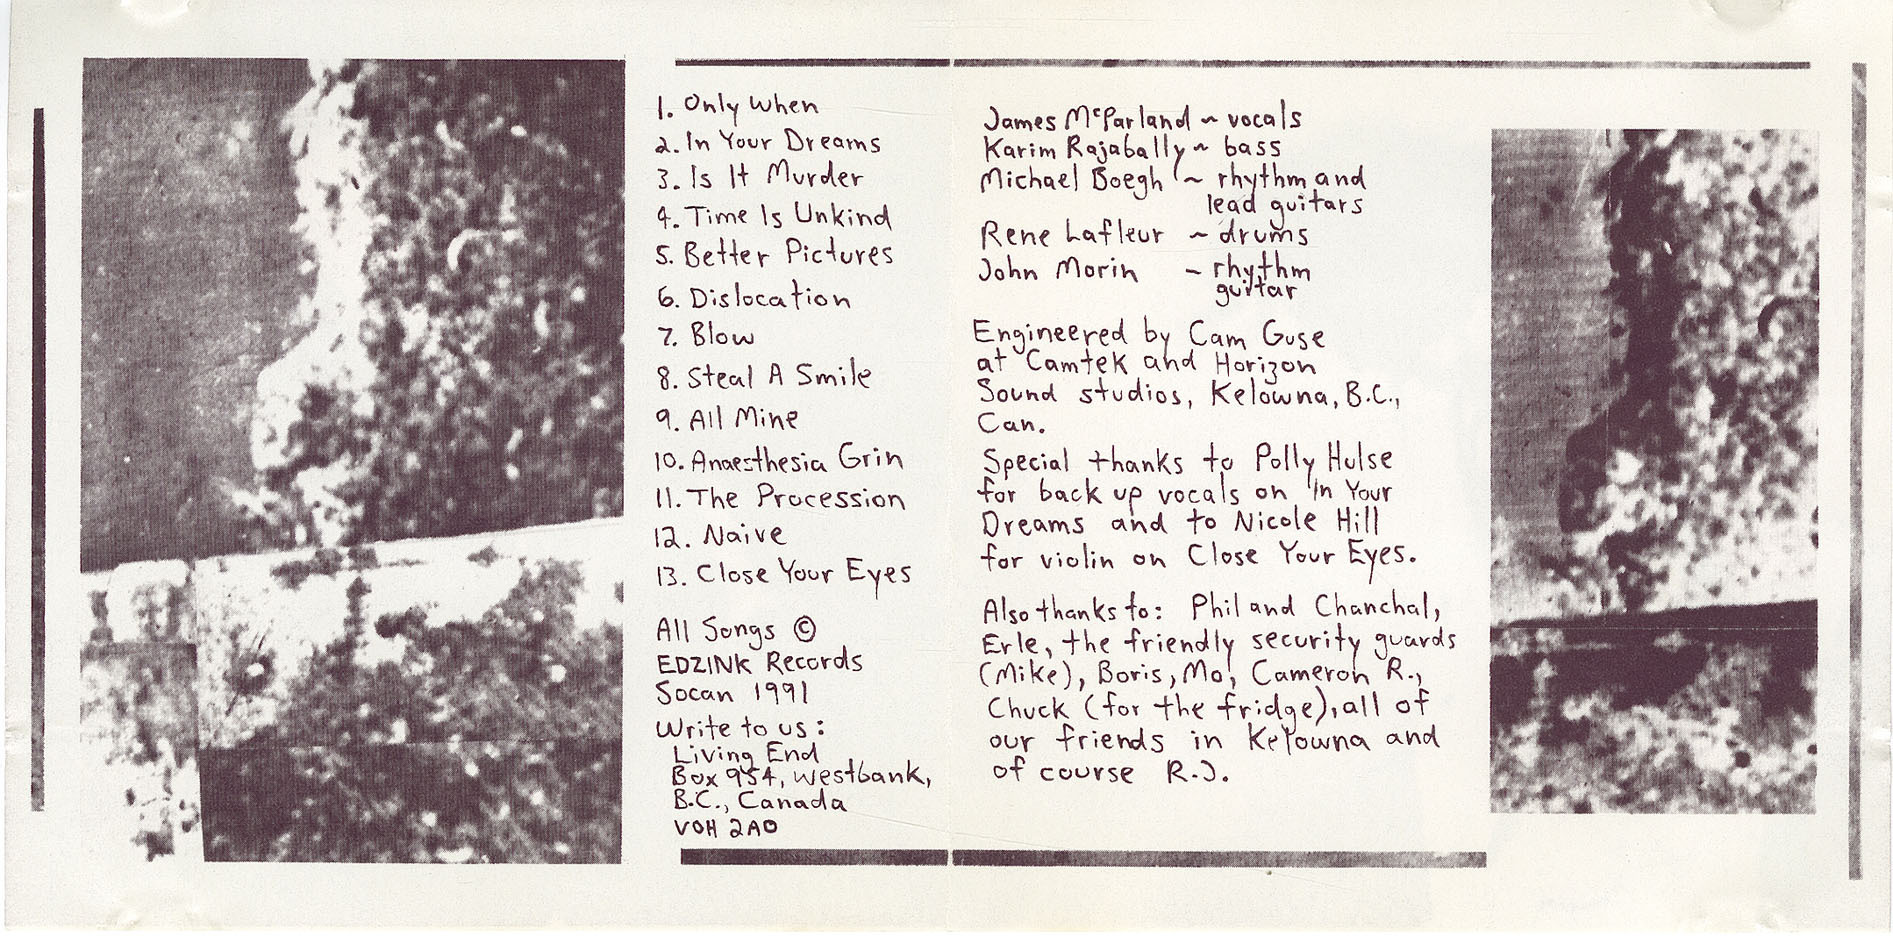 1. Only When
2. In Your Dreams
3. Is It Murder
4. Time Is Unkind
5. Better Pictures
6. Dislocation
7. Blow
8. Steal A Smile
9. All Mine
10. Anaesthesia Grin
11. The Procession
12. Naive
13. Close Your Eyes
All Songs ©
EDZINK Records
Socan 1991
Write to us:
Living End
Box 954, Westbank,
B.C., Canada
V0H 2A0
James McParland ~ vocals
Karim Rajabally ~ bass
Michael Boegh ~ rhythm and
lead guitars
Rene Lafleur ~ drums
John Morin ~ rhythm
guitar
Engineered by Cam Guse
at Camtek and Horizon
Sound studios, Kelowna, B.C.,
Can.
Special thanks to Polly Hulse
for back up vocals on In Your
Dreams and to Nicole Hill
for violin on Close Your Eyes.
Also thanks to: Phil and Chanchal,
Erle, the friendly security guards
(Mike), Boris, Mo, Cameron R.,
Chuck (for the fridge), all of
our friends in Kelowna and
of course R.J.